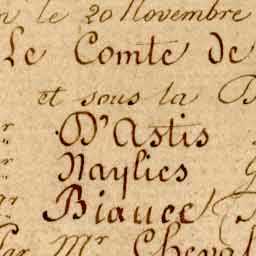 n le 20 Novembre
Le Comte de
et sous la
r D'Astis
r Naylies
r Biauce
Par Mr Cheval